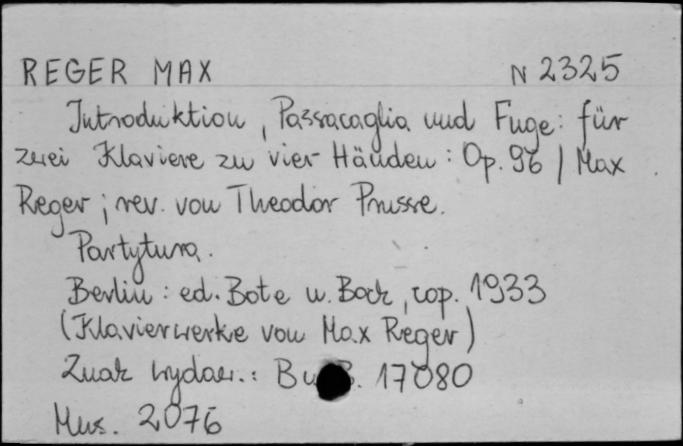 REGER MAX N 2325
Introduktion, Passacaglia und Fuge: für
zwei Klaviere zu vier Händen: Op. 96 / Max
Reger; rev. von Theodor Prusse.
Partytura.
Berlin: ed. Bote u. Bock, cop. 1933
(Klavierwerke von Max Reger)
Znak wydaw.: B u. B. 17080
Mus. 2076